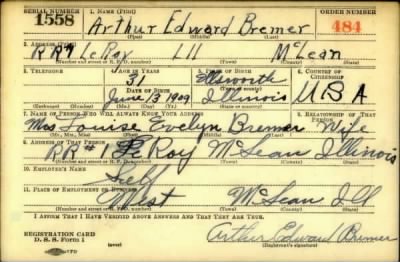 SERIAL NUMBER 1. NAME (Print) ORDER NUMBER
1558 Arthur Edward Bremer 484
(First) (Middle) (Last)
2. ADDRESS (Print)
RR#1 LeRoy Ill McLean
(Number and street or R. F. D. number) (Town) (County) (State)
3. TELEPHONE 4. AGE IN YEARS 5. PLACE OF BIRTH 6. COUNTRY OF CITIZENSHIP
31 Ellsworth
DATE OF BIRTH (Town or county)
June 13 1909 Illinois U S A
(Exchange) (Number) (Mo.) (Day) (Yr.) (State or country)
7. NAME OF PERSON WHO WILL ALWAYS KNOW YOUR ADDRESS 8. RELATIONSHIP OF THAT PERSON
Mrs Louise Evelyn Bremer Wife
(Mr., Mrs., Miss) (First) (Middle) (Last)
9. ADDRESS OF THAT PERSON
RR#1 Le Roy McLean Illinois
(Number and street or R. F. D. number) (Town) (County) (State)
10. EMPLOYER'S NAME
Self
11. PLACE OF EMPLOYMENT OR BUSINESS
West McLean Ill
(Number and street or R. F. D. number) (Town) (County) (State)
I AFFIRM THAT I HAVE VERIFIED ABOVE ANSWERS AND THAT THEY ARE TRUE.
REGISTRATION CARD
D. S. S. Form 1 Arthur Edward Bremer
(Registrant's signature)